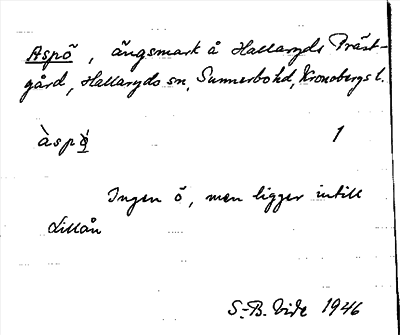 Aspö, ängsmark å Hallaryds Präst-
gård, Hallaryds sn, Sunnerbo hd, Kronobergs l.
àspö̀ 1
Ingen ö, men ligger intill
Lillån
S.-B. Vide 1946